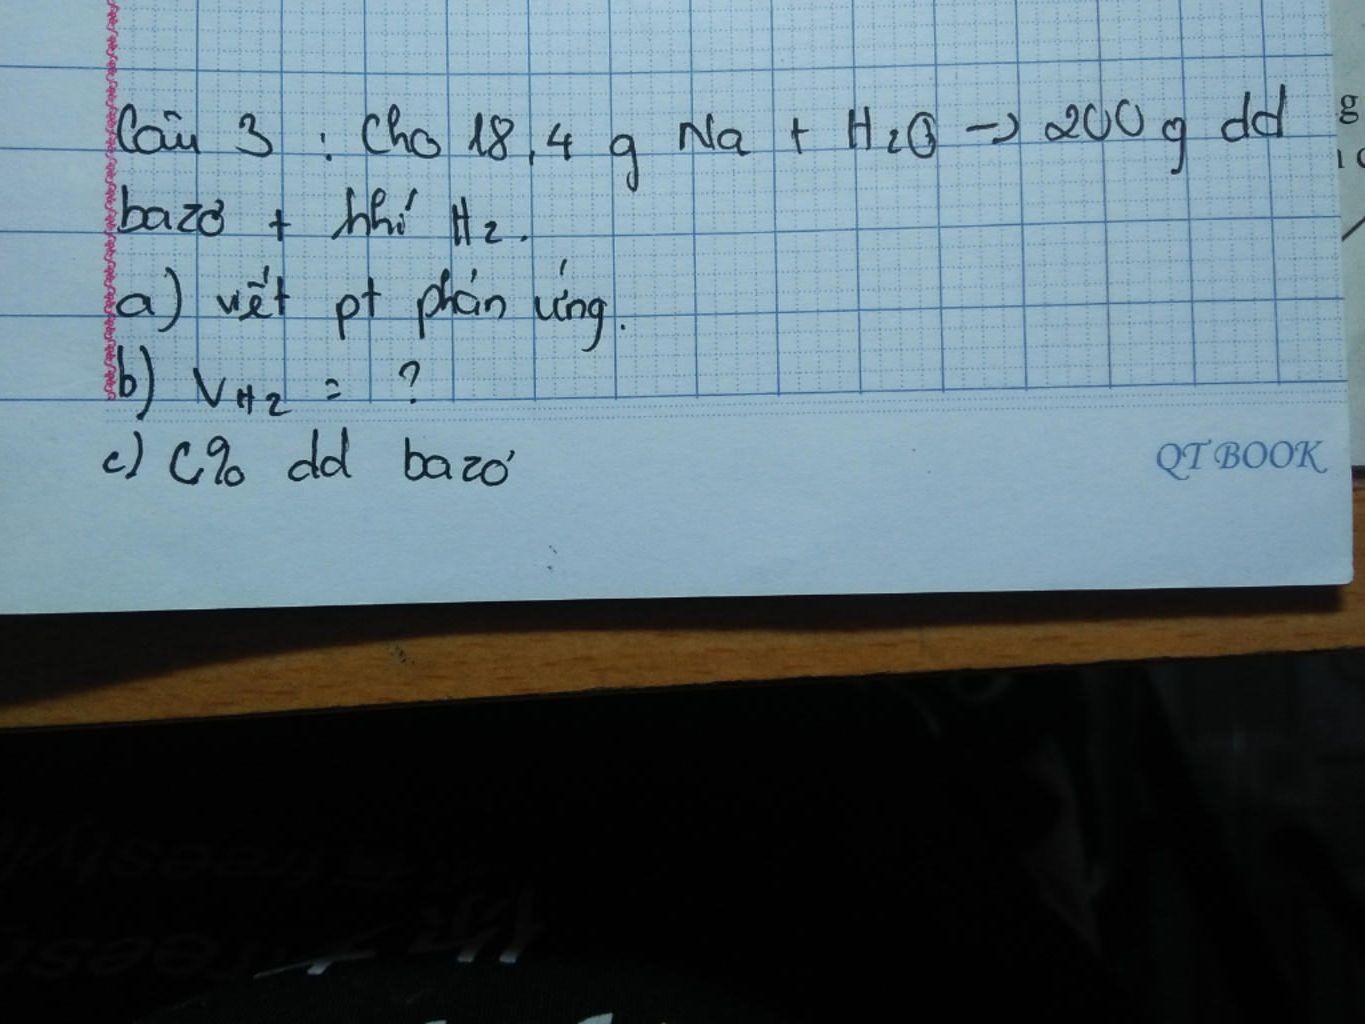 Câu 3 : Cho 18,4 g Na + H₂O → 200 g dd
bazơ + khí H₂.
a) viết pt phản ứng.
b) V H₂ = ?
c) C% dd bazơ
QT BOOK
g